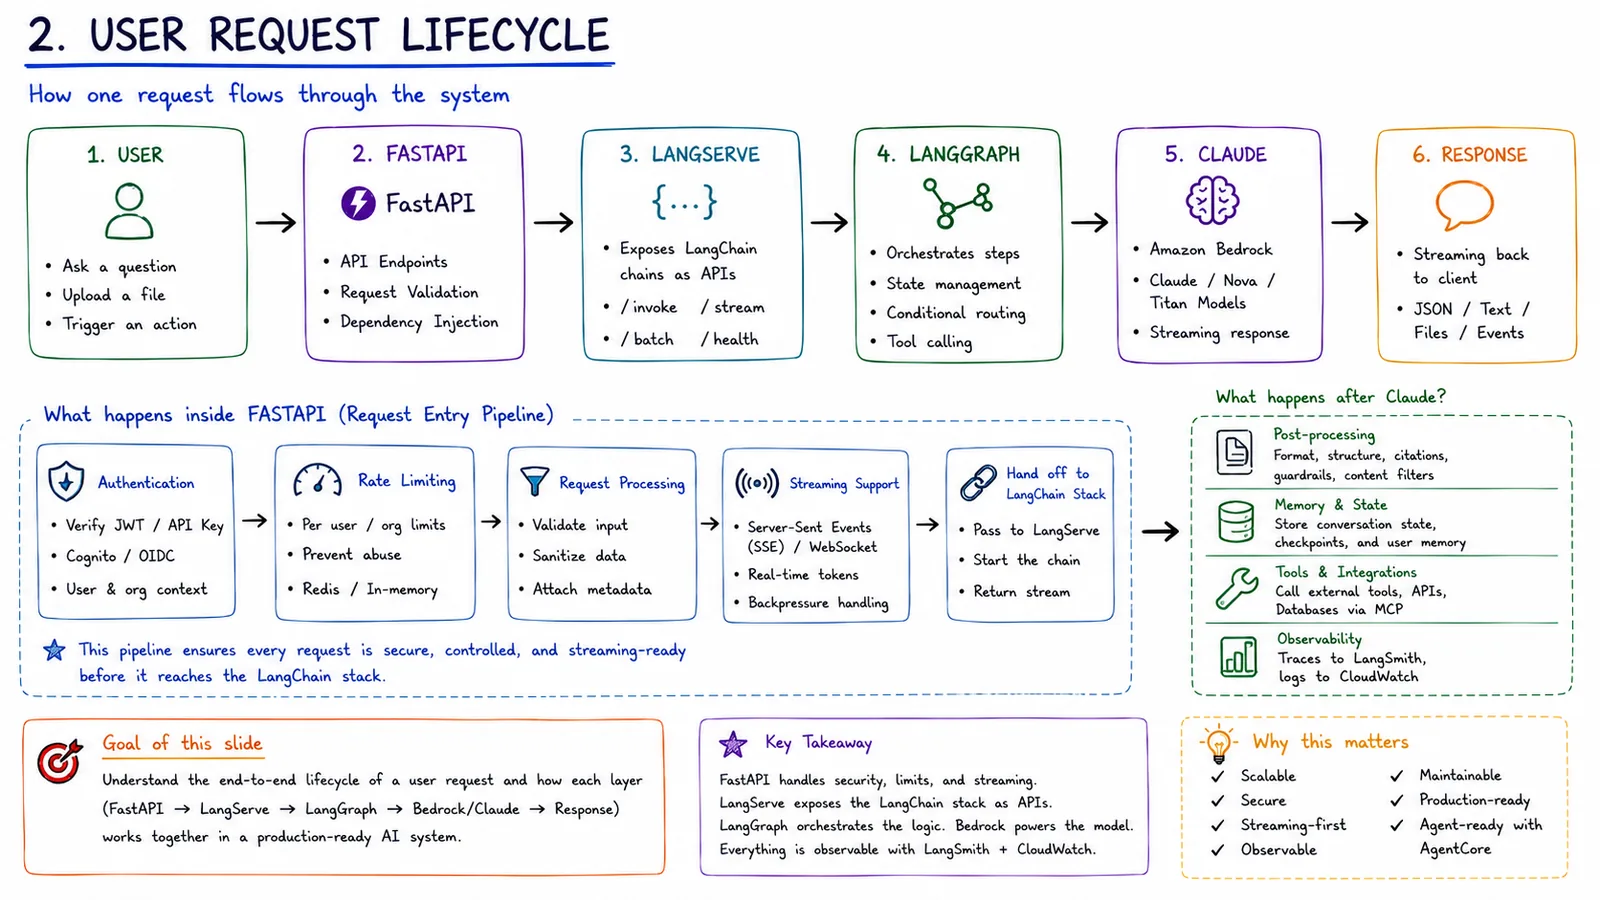 2. USER REQUEST LIFECYCLE
How one request flows through the system
1. USER
• Ask a question
• Upload a file
• Trigger an action
2. FASTAPI
FastAPI
• API Endpoints
• Request Validation
• Dependency Injection
3. LANGSERVE
{...}
• Exposes LangChain
chains as APIs
• / invoke / stream
• / batch / health
4. LANGGRAPH
• Orchestrates steps
• State management
• Conditional routing
• Tool calling
5. CLAUDE
• Amazon Bedrock
• Claude / Nova /
Titan Models
• Streaming response
6. RESPONSE
• Streaming back
to client
• JSON / Text /
Files / Events
What happens inside FASTAPI (Request Entry Pipeline)
Authentication
• Verify JWT / API Key
• Cognito / OIDC
• User & org context
Rate Limiting
• Per user / org limits
• Prevent abuse
• Redis / In-memory
Request Processing
• Validate input
• Sanitize data
• Attach metadata
Streaming Support
• Server-Sent Events
(SSE) / WebSocket
• Real-time tokens
• Backpressure handling
Hand off to
LangChain Stack
• Pass to LangServe
• Start the chain
• Return stream
This pipeline ensures every request is secure, controlled, and streaming-ready
before it reaches the LangChain stack.
What happens after Claude?
Post-processing
Format, structure, citations,
guardrails, content filters
Memory & State
Store conversation state,
checkpoints, and user memory
Tools & Integrations
Call external tools, APIs,
Databases via MCP
Observability
Traces to LangSmith,
logs to CloudWatch
Goal of this slide
Understand the end-to-end lifecycle of a user request and how each layer
(FastAPI → LangServe → LangGraph → Bedrock/Claude → Response)
works together in a production-ready AI system.
Key Takeaway
FastAPI handles security, limits, and streaming.
LangServe exposes the LangChain stack as APIs.
LangGraph orchestrates the logic. Bedrock powers the model.
Everything is observable with LangSmith + CloudWatch.
Why this matters
✓ Scalable
✓ Secure
✓ Streaming-first
✓ Observable
✓ Maintainable
✓ Production-ready
✓ Agent-ready with
AgentCore